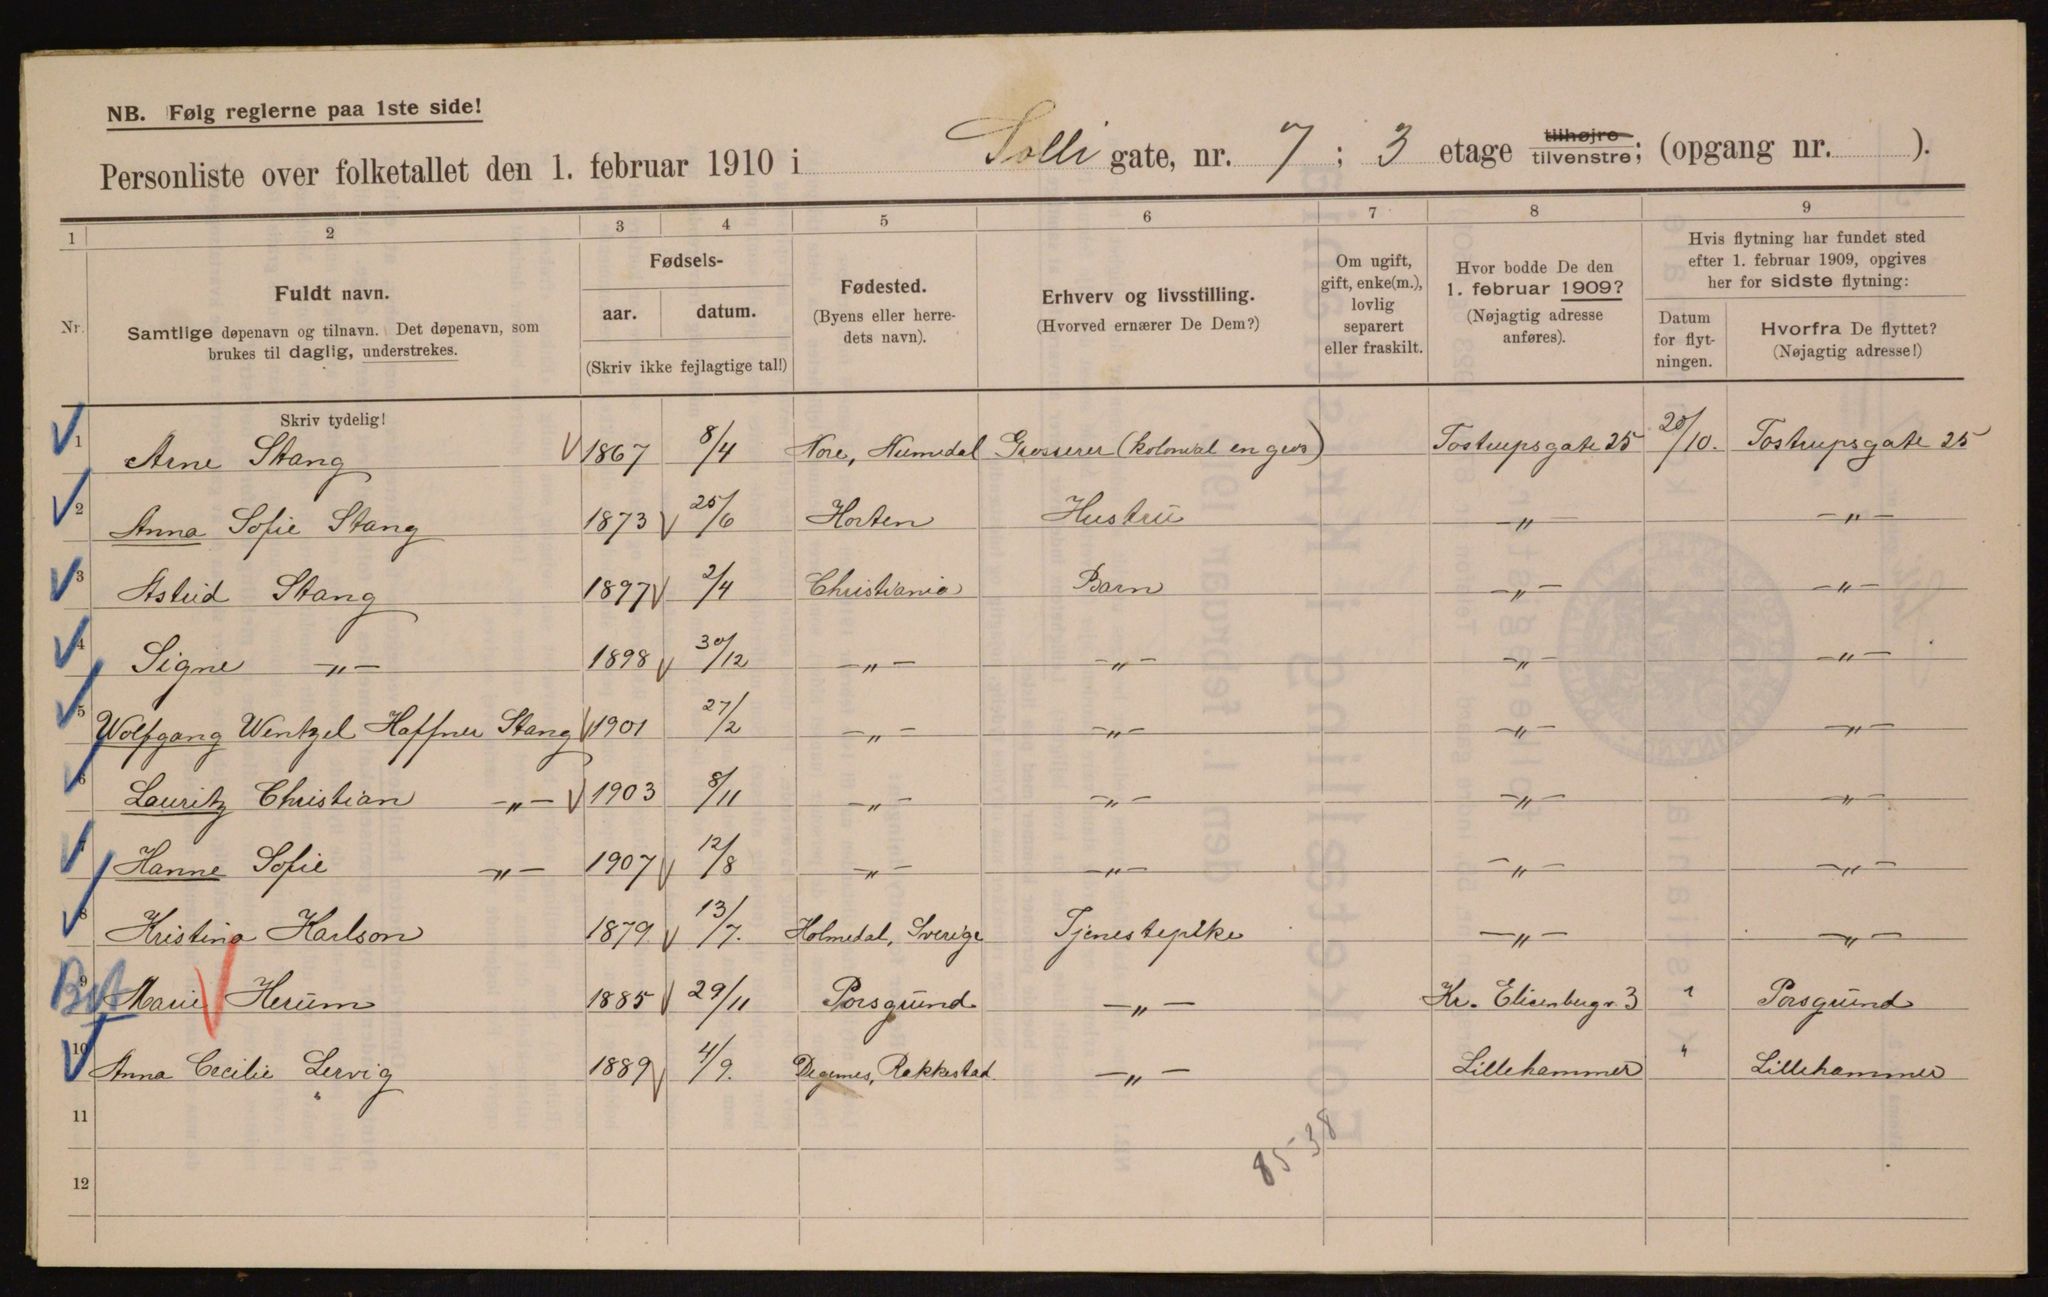 NB. Følg reglerne paa 1ste side!
Personliste over folketallet den 1. februar 1910 i Solli gate, nr. 7 ; 3 etage tilhøjre tilvenstre; (opgang nr. ).
1 2 3 4 5 6 7 8 9
Nr.
Fuldt navn.
Samtlige døpenavn og tilnavn. Det døpenavn, som
brukes til daglig, understrekes.
Skriv tydelig!
Fødsels-
aar. datum.
(Skriv ikke fejlagtige tal!)
Fødested.
(Byens eller herre-
dets navn).
Erhverv og livsstilling.
(Hvorved ernærer De Dem?)
Om ugift,
gift, enke(m.),
lovlig
separert
eller fraskilt.
Hvor bodde De den
1. februar 1909?
(Nøjagtig adresse
anføres).
Hvis flytning har fundet sted
efter 1. februar 1909, opgives
her for sidste flytning:
Datum
for flyt-
ningen.
Hvorfra De flyttet?
(Nøjagtig adresse!)
1 Arne Stang 1867 8/4 Nore, Numedal Grosserer (kolonial en gros) Tostrupsgate 25 20/10. Tostrupsgate 25
2 Anna Sofie Stang 1873 25/6 Horten Hustru —"— —"—
3 Astrid Stang 1897 2/4 Christiania Barn —"— —"—
4 Signe —"— 1898 30/12 —"— —"— —"— —"—
5 Wolfgang Wentzel Haffner Stang 1901 27/2 —"— —"— —"— —"—
6 Lauritz Christian —"— 1903 8/11 —"— —"— —"— —"—
7 Hanne Sofie —"— 1907 12/8 —"— —"— —"— —"—
8 Kristina Karlson 1879 13/7. Holmedal, Sverige Tjenestepike —"— —"—
9 Marie Herum 1885 29/11 Porsgrund —"— Kr. Elisenbergv. 3 " Porsgrund
10 Anna Cecilie Lervig 1889 4/9. Degernes, Rakkestad. —"— Lillehammer " Lillehammer
11
12
85-38